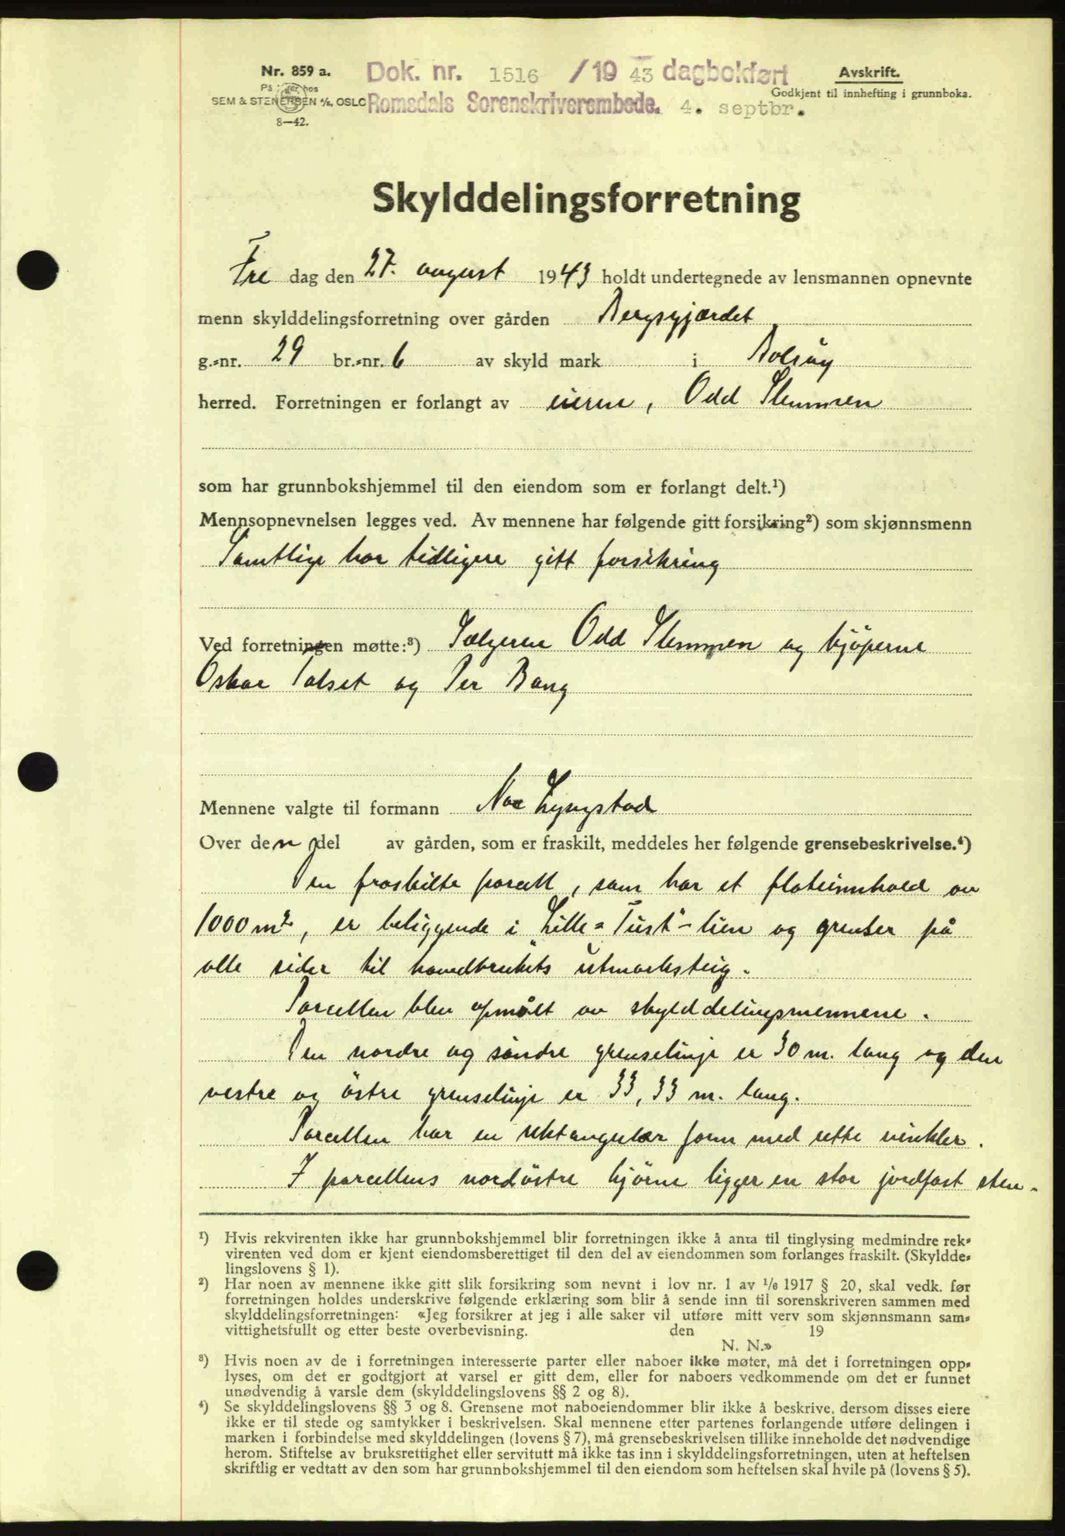 Nr. 859 a.
På lager hos
SEM & STENERSEN A/S, OSLO
8—42.
Dok. nr. 1516 /19 43 dagbokført
Romsdals Sorenskriverembede. 4. septbr.
Avskrift.
Godkjent til innhefting i grunnboka.
Skylddelingsforretning
Fre dag den 27. august 1943 holdt undertegnede av lensmannen opnevnte
menn skylddelingsforretning over gården Bergsgjærdet
g.-nr. 29 br.-nr. 6 av skyld mark i Bolsøy
herred. Forretningen er forlangt av eieren, Odd Stemmen
som har grunnbokshjemmel til den eiendom som er forlangt delt.¹)
Mennsopnevnelsen legges ved. Av mennene har følgende gitt forsikring²) som skjønnsmenn
Samtlige har tidligere gitt forsikring
Ved forretningen møtte:³) Sælgeren Odd Stemmen og kjøperne
Oskar Talset og Per Bang
Mennene valgte til formann Lyngstad
Over den del av gården, som er fraskilt, meddeles her følgende grensebeskrivelse.⁴)
Den fraskilte parcell, som har et flateinnhold av
1000 m², er beliggende i Lille-"Tust"-lien og grenser på
alle sider til hovedbrukets utmarksteig.
Parcellen blev opmålt av skylddelingsmennene.
Den nordre og søndre grenselinje er 30 m. lang og den
vestre og östre grenselinje er 33,33 m. lang.
Parcellen har en rektangulær form med rette vinkler.
I parcellens nordöstre hjörne ligger en stor jordfast sten.
¹) Hvis rekvirenten ikke har grunnbokshjemmel blir forretningen ikke å anta til tinglysing medmindre rek-
virenten ved dom er kjent eiendomsberettiget til den del av eiendommen som forlanges fraskilt. (Skyldde-
lingslovens § 1).
²) Har noen av mennene ikke gitt slik forsikring som nevnt i lov nr. 1 av 1/6 1917 § 20, skal vedk. før
forretningen holdes underskrive følgende erklæring som blir å sende inn til sorenskriveren sammen med
skylddelingsforretningen: «Jeg forsikrer at jeg i alle saker vil utføre mitt verv som skjønnsmann sam-
vittighetsfullt og etter beste overbevisning. den 19
N. N.»
³) Hvis noen av de i forretningen interesserte parter eller naboer ikke møter, må det i forretningen opp-
lyses, om det er godtgjort at varsel er gitt dem, eller for naboers vedkommende om det er funnet
unødvendig å varsle dem (skylddelingslovens §§ 2 og 8).
⁴) Se skylddelingslovens §§ 3 og 8. Grensene mot naboeiendommer blir ikke å beskrive, dersom disses eiere
ikke er til stede og samtykker i beskrivelsen. Skal mennene etter partenes forlangende utføre delingen i
marken i forbindelse med skylddelingen (lovens § 7), må grensebeskrivelsen tillike inneholde det nødvendige
herom. Stiftelse av bruksrettighet eller servitutt må ikke tas inn i skylddelingsforretningen, uten at heftelsen
skriftlig er vedtatt av den som har grunnbokshjemmel til den eiendom som heftelsen skal hvile på (lovens § 5).